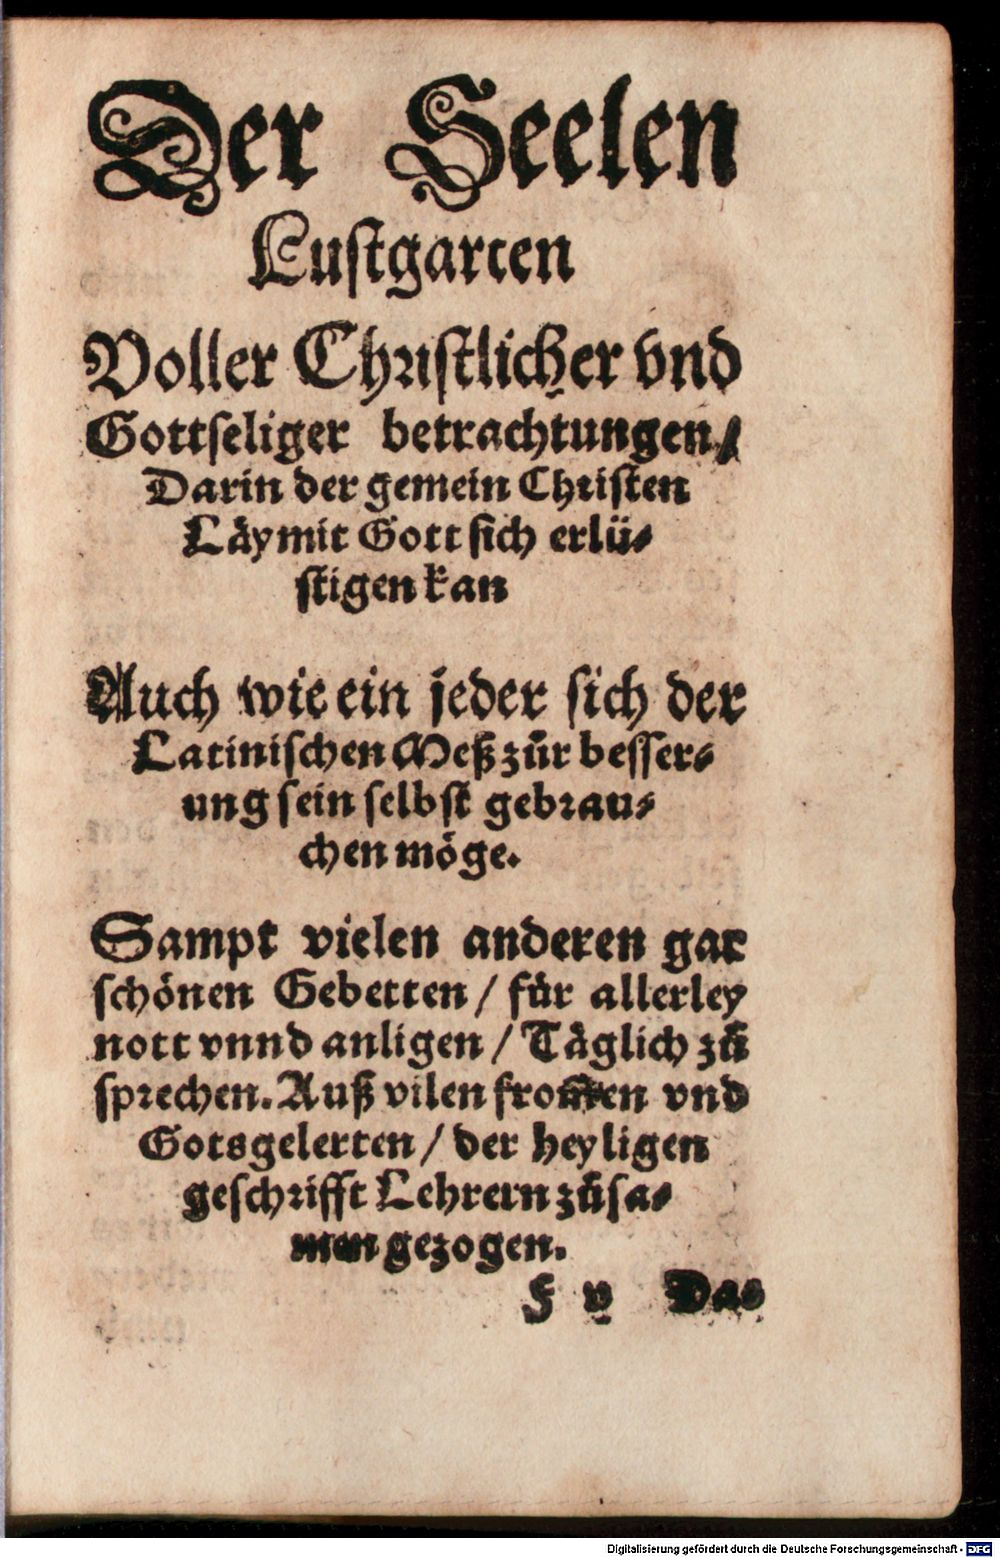 Der Seelen
Lustgarten
Voller Christlicher vnd
Gottseliger betrachtungen/
Darin der gemein Christen
Läy mit Gott sich erlü-
stigen kan
Auch wie ein jeder sich der
Latinischen Meß zůr besser-
ung sein selbst gebrau-
chen möge.
Sampt vielen anderen gar
schönen Gebetten / für allerley
nott vnnd anligen / Täglich zů
sprechen. Auß vilen from̃en vnd
Gotsgelerten / der heyligen
geschrifft Lehrern zůsa-
men gezogen.
F v Da-
Digitalisierung gefördert durch die Deutsche Forschungsgemeinschaft - DFG